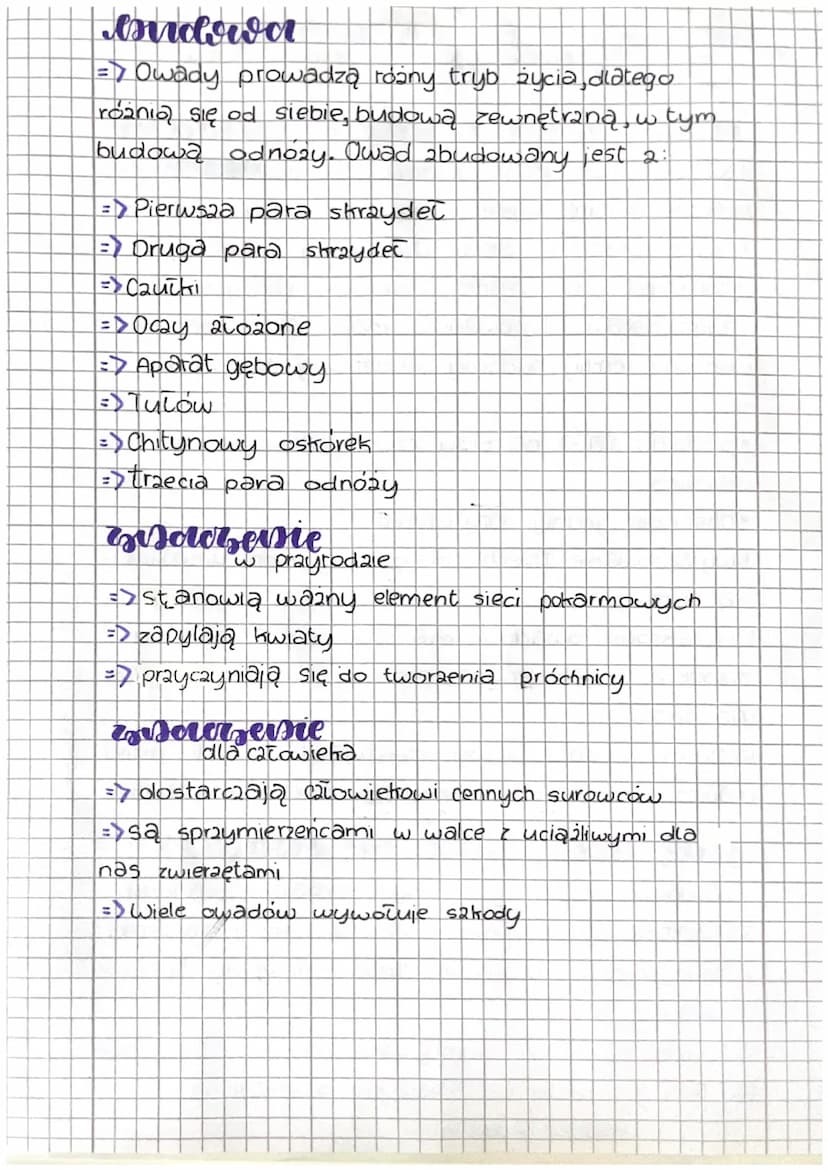 budowa
=> Owady prowadzą różny tryb życia, dlatego
różnią się od siebie, budową zewnętrzną, w tym
budową odnóży. Owad zbudowany jest z:
=> Pierwsza para skrzydeł
=> Druga para skrzydeł
=> Czułki
=> Oczy złożone
=> Aparat gębowy
=> Tułów
=> Chitynowy oskórek
=> trzecia para odnóży
znaczenie
w przyrodzie
=> stanowią ważny element sieci pokarmowych
=> zapylają kwiaty
=> przyczyniają się do tworzenia próchnicy
znaczenie
dla człowieka
=> dostarczają człowiekowi cennych surowców
=> są sprzymierzeńcami w walce z uciążliwymi dla
nas zwierzętami
=> Wiele owadów wywołuje szkody